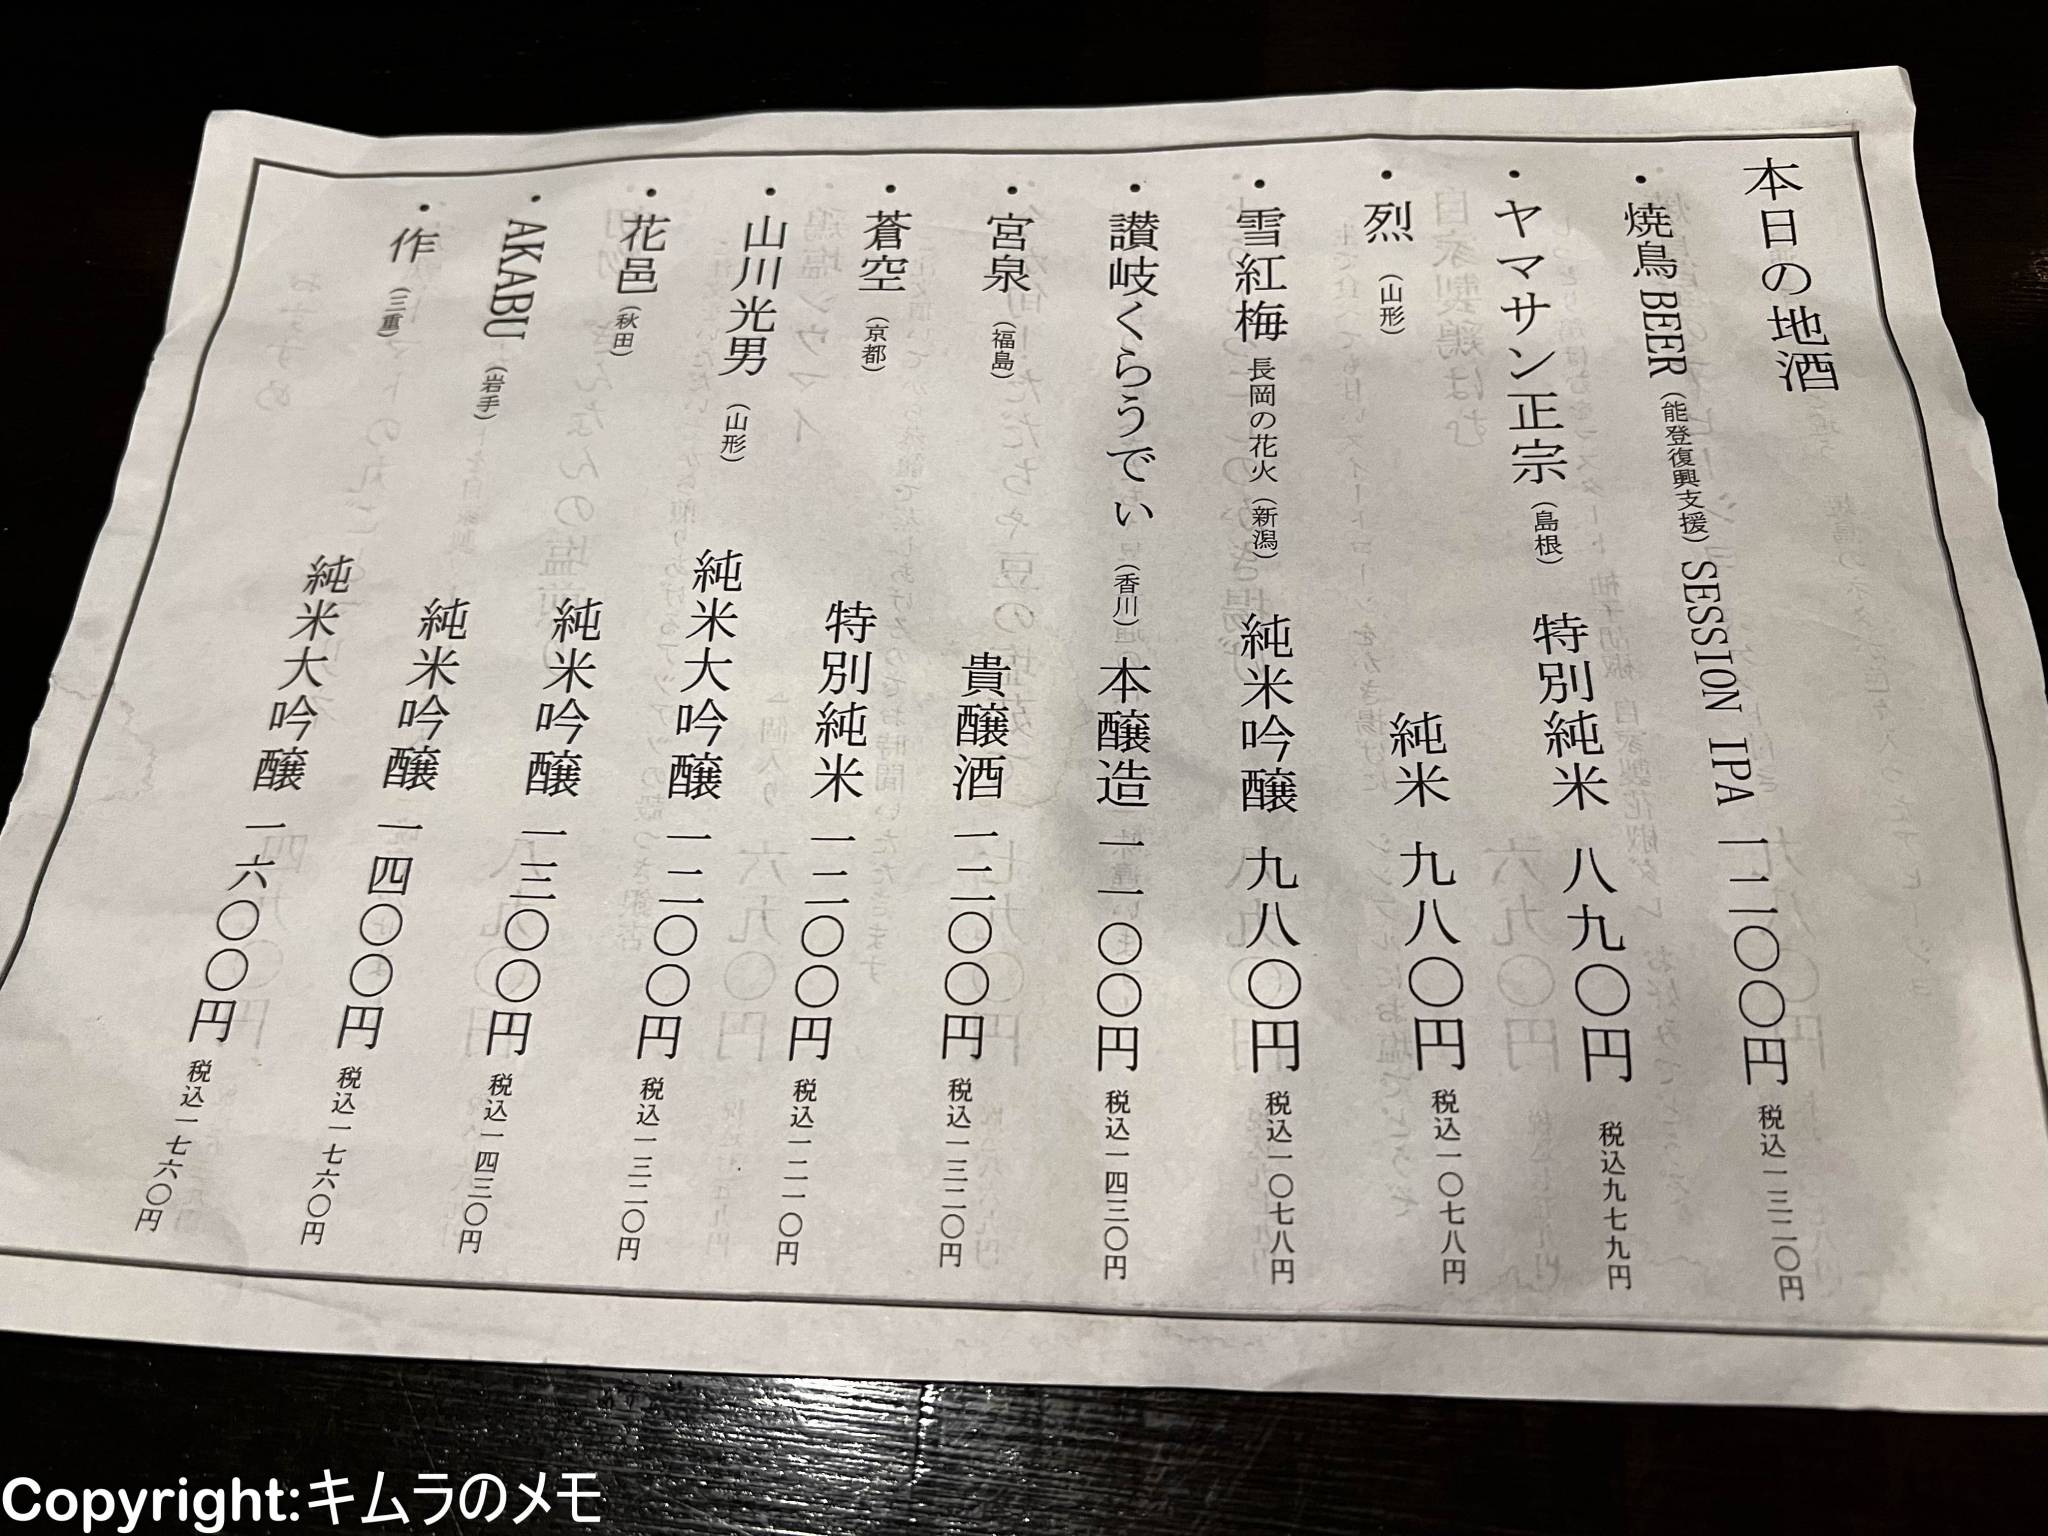 本日の地酒
・焼鳥BEER（能登復興支援）SESSION IPA 一二〇〇円 税込一三二〇円
・ヤマサン正宗（島根） 特別純米 八九〇円 税込九七九円
・烈（山形） 純米 九八〇円 税込一〇七八円
・雪紅梅 長岡の花火（新潟） 純米吟醸 九八〇円 税込一〇七八円
・讃岐くらうでぃ（香川） 本醸造 一一〇〇円 税込一四三〇円
・宮泉（福島） 貴醸酒 一二〇〇円 税込一三二〇円
・蒼空（京都） 特別純米 一二〇〇円 税込一二一〇円
・山川光男（山形） 純米大吟醸 一二〇〇円 税込一三二〇円
・花邑（秋田） 純米吟醸 一三〇〇円 税込一四三〇円
・AKABU（岩手） 純米吟醸 一四〇〇円 税込一七六〇円
・作（三重） 純米大吟醸 一六〇〇円 税込一七六〇円
Copyright:キムラのメモ